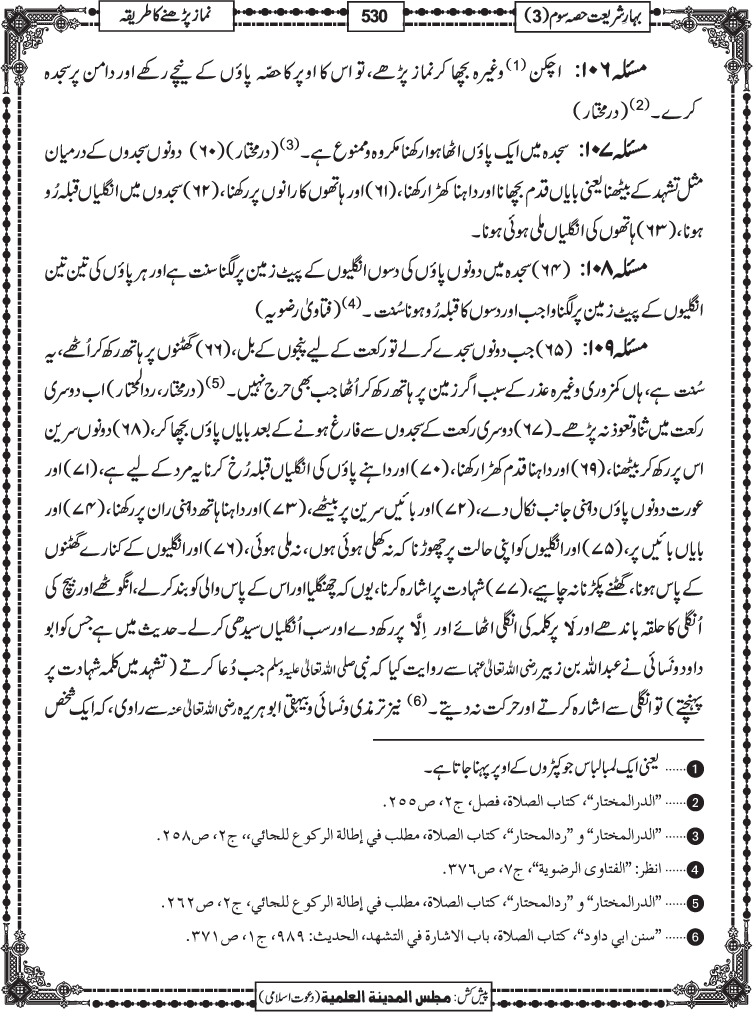 بہارِ شریعت حصہ سوم (3)
530
نماز پڑھنے کا طریقہ
مسئلہ ۱۰۶: اچکن (1) وغیرہ بچھا کر نماز پڑھے، تو اس کا اوپر کا حصّہ پاؤں کے نیچے رکھے اور دامن پر سجدہ
کرے۔ (2) (درمختار)
مسئلہ ۱۰۷: سجدہ میں ایک پاؤں اٹھا ہوا رکھنا مکروہ و ممنوع ہے۔ (3) (درمختار) (۶۰) دونوں سجدوں کے درمیان
مثل تشہد کے بیٹھنا یعنی بایاں قدم بچھانا اور داہنا کھڑا رکھنا، (۶۱) اور ہاتھوں کا رانوں پر رکھنا، (۶۲) سجدوں میں انگلیاں قبلہ رُو
ہونا، (۶۳) ہاتھوں کی انگلیاں ملی ہوئی ہونا۔
مسئلہ ۱۰۸: (۶۴) سجدہ میں دونوں پاؤں کی دسوں انگلیوں کے پیٹ زمین پر لگنا سنت ہے اور ہر پاؤں کی تین تین
انگلیوں کے پیٹ زمین پر لگنا واجب اور دسوں کا قبلہ رُو ہونا سُنت۔ (4) (فتاویٰ رضویہ)
مسئلہ ۱۰۹: (۶۵) جب دونوں سجدے کرلے تو رکعت کے لیے پنجوں کے بل، (۶۶) گھٹنوں پر ہاتھ رکھ کر اُٹھے، یہ
سُنت ہے، ہاں کمزوری وغیرہ عذر کے سبب اگر زمین پر ہاتھ رکھ کر اُٹھا جب بھی حرج نہیں۔ (5) (درمختار، ردالمحتار) اب دوسری
رکعت میں ثنا و تعوذ نہ پڑھے۔ (۶۷) دوسری رکعت کے سجدوں سے فارغ ہونے کے بعد بایاں پاؤں بچھا کر، (۶۸) دونوں سرین
اس پر رکھ کر بیٹھنا، (۶۹) اور داہنا قدم کھڑا رکھنا، (۷۰) اور داہنے پاؤں کی انگلیاں قبلہ رُخ کرنا یہ مرد کے لیے ہے، (۷۱) اور
عورت دونوں پاؤں داہنی جانب نکال دے، (۷۲) اور بائیں سرین پر بیٹھے، (۷۳) اور داہنا ہاتھ داہنی ران پر رکھنا، (۷۴) اور
بایاں بائیں پر، (۷۵) اور انگلیوں کو اپنی حالت پر چھوڑنا کہ نہ کھلی ہوئی ہوں، نہ ملی ہوئی، (۷۶) اور انگلیوں کے کنارے گھٹنوں
کے پاس ہونا، گھٹنے پکڑنا نہ چاہیے، (۷۷) شہادت پر اشارہ کرنا، یوں کہ چھنگلیا اور اس کے پاس والی کو بند کرلے، انگوٹھے اور بیچ کی
اُنگلی کا حلقہ باندھے اور لَا پر کلمہ کی انگلی اٹھائے اور اِلَّا پر رکھ دے اور سب اُنگلیاں سیدھی کرلے۔ حدیث میں ہے جس کو ابو
داود و نَسائی نے عبداللہ بن زبیر رضی اللہ تعالیٰ عنہما سے روایت کیا کہ نبی صلی اللہ تعالیٰ علیہ وسلم جب دُعا کرتے (تشہد میں کلمہ شہادت پر
پہنچتے) تو انگلی سے اشارہ کرتے اور حرکت نہ دیتے۔ (6) نیز ترمذی و نَسائی و بیہقی ابوہریرہ رضی اللہ تعالیٰ عنہ سے راوی، کہ ایک شخص
1 ...... یعنی ایک لمبا لباس جو کپڑوں کے اوپر پہنا جاتا ہے۔
2 ...... "الدرالمختار"، کتاب الصلاة، فصل، ج۲، ص۲۵۵.
3 ...... "الدرالمختار" و "ردالمحتار"، کتاب الصلاة، مطلب في إطالة الرکوع للجائي،، ج۲، ص۲۵۸.
4 ...... انظر: "الفتاوی الرضوية"، ج۷، ص۳۷۶.
5 ...... "الدرالمختار" و "ردالمحتار"، کتاب الصلاة، مطلب في إطالة الرکوع للجائي، ج۲، ص۲۶۲.
6 ...... "سنن ابي داود"، کتاب الصلاة، باب الاشارة في التشهد، الحديث: ۹۸۹، ج۱، ص۳۷۱.
پیش کش: مجلس المدینة العلمیة (دعوت اسلامی)